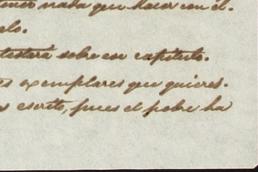 nada que hacer con el.
elo.
testará sobre ese capítulo.
es exemplares que quieres.
escrito, pues el pobre ha